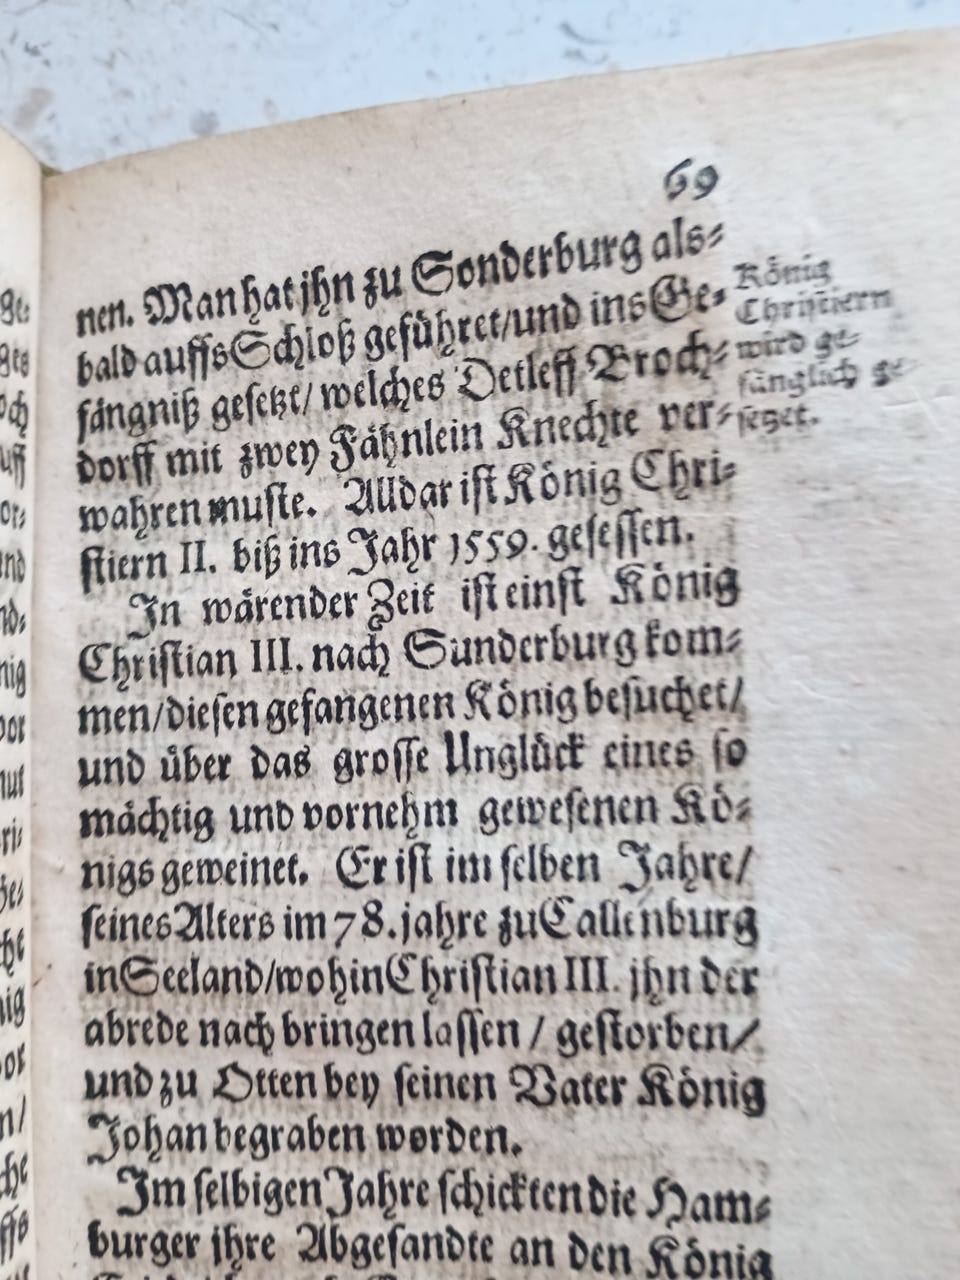 69
nen. Man hat jhn zu Sonderburg als⸗
bald auffs Schloß geführet/ und ins Ge⸗
fängniß gesetzt/ welches Detleff Broch⸗
dorff mit zwey Fähnlein Knechte ver⸗
wahren muste. Alldar ist König Chri⸗
stiern II. biß ins Jahr 1559. gesessen.
In wärender Zeit ist einst König
Christian III. nach Sunderburg kom⸗
men/ diesen gefangenen König besuchet/
und über das grosse Unglück eines so
mächtig und vornehm gewesenen Kö⸗
nigs geweinet. Er ist im selben Jahre/
seines Alters im 78. jahre zu Callenburg
in Seeland/ wohin Christian III. jhn der
abrede nach bringen lassen / gestorben/
und zu Otten bey seinen Vater König
Johan begraben worden.
Im selbigen Jahre schickten die Ham⸗
burger jhre Abgesandte an den König
König
Christiern
wird ge⸗
fänglich ge⸗
setzet.